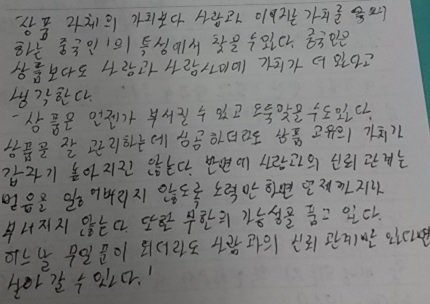 '상품 자체의 가치보다 사람과 이어지는 가치를 중시
하는 중국인'의 특성에서 찾을 수 있다. 중국인은
상품보다도 사람과 사람사이에 가치가 더 있다고
생각한다.
'상품은 언젠가 부서질 수 있고 도둑맞을 수도 있다.
상품을 잘 관리하는데 성공하더라도 상품 고유의 가치가
갑자기 높아지진 않는다. 반면에 사람과의 신뢰 관계는
믿음을 잃어버리지 않도록 노력만 하면 언제까지나
부서지지 않는다. 또한 무한의 가능성을 품고 있다.
어느날 무일푼이 되더라도 사람과의 신뢰 관계만 있다면
살아갈 수 있다.'